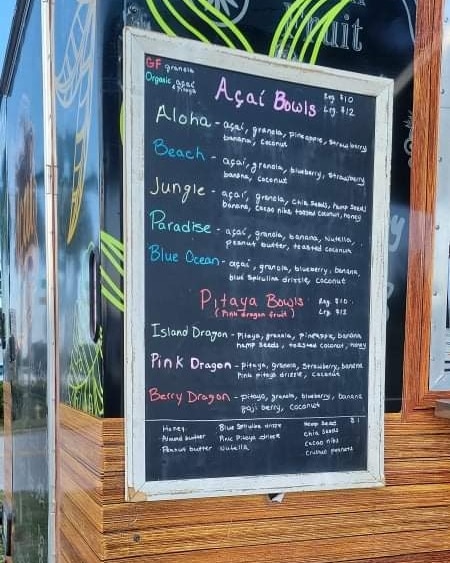 Fruit
GF granola
Organic açaí
& pitaya
Açaí Bowls
Reg. $10
Lrg. $12
Aloha - açaí, granola, pineapple, strawberry
banana, coconut
Beach - açaí, granola, blueberry, strawberry
banana, coconut
Jungle - açaí, granola, chia seeds, hemp seed
banana, cacao nibs, toasted coconut, honey
Paradise - açaí, granola, banana, nutella,
peanut butter, toasted coconut
Blue Ocean - açaí, granola, blueberry, banana,
blue spirulina drizzle, coconut
Pitaya Bowls
(Pink dragon fruit)
Reg. $10
Lrg. $12
Island Dragon - Pitaya, granola, pineapple, banana
hemp seeds, toasted coconut, honey
Pink Dragon - Pitaya, granola, strawberry, banana
Pink pitaya drizzle, coconut
Berry Dragon - pitaya, granola, blueberry, banana
goji berry, coconut
Honey Blue Spirulina drizzle Hemp Seed $1
Almond butter Pink Pitaya drizzle chia seeds
Peanut butter Nutella cacao nibs
crushed peanuts